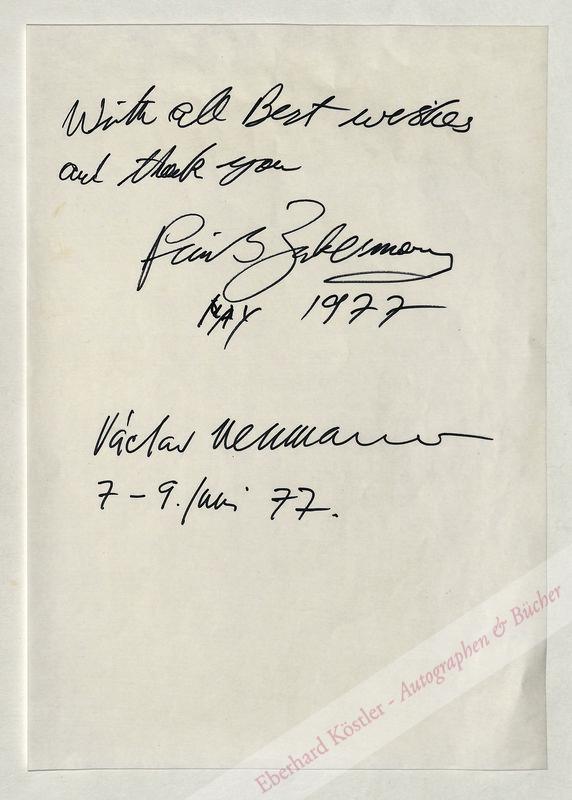 With all Best wishes
and thank you
Pinchas Zukerman
MAY 1977
Václav Neumann
7 - 9. Juni 77.
Eberhard Köstler - Autographen & Bücher